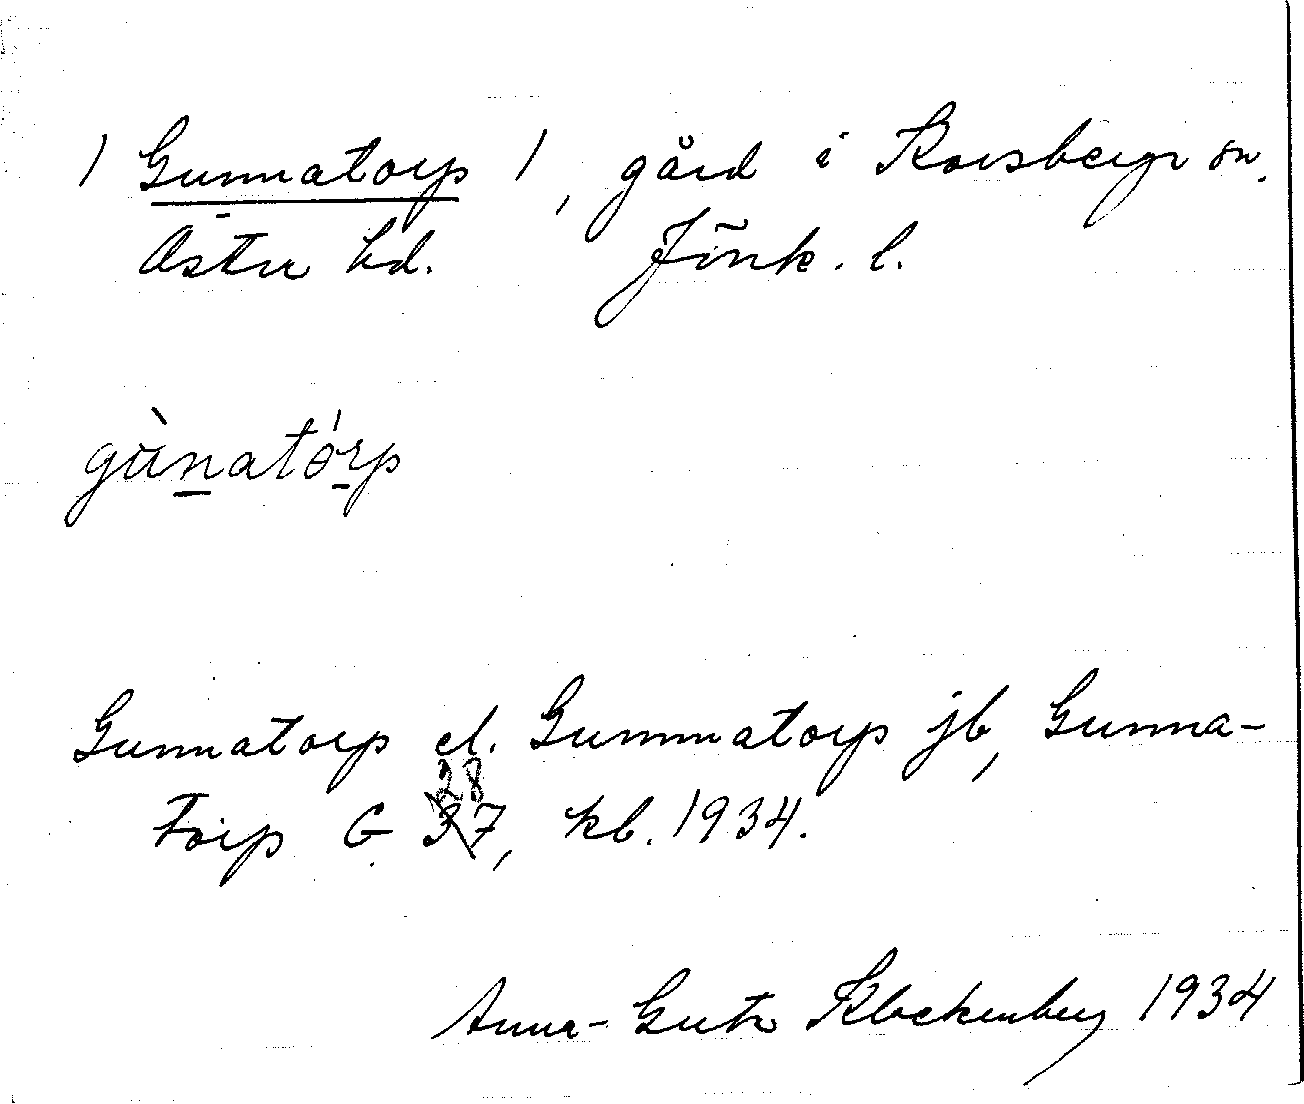 / Gunnatorp /, gård i Korsberga sn.
Östra hd. Jönk. l.
gùnatórp
Gunnatorp el. Gummatorp jb, Gunna-
torp G 28 37, kb. 1934.
Anna-Greta Klockenberg 1934